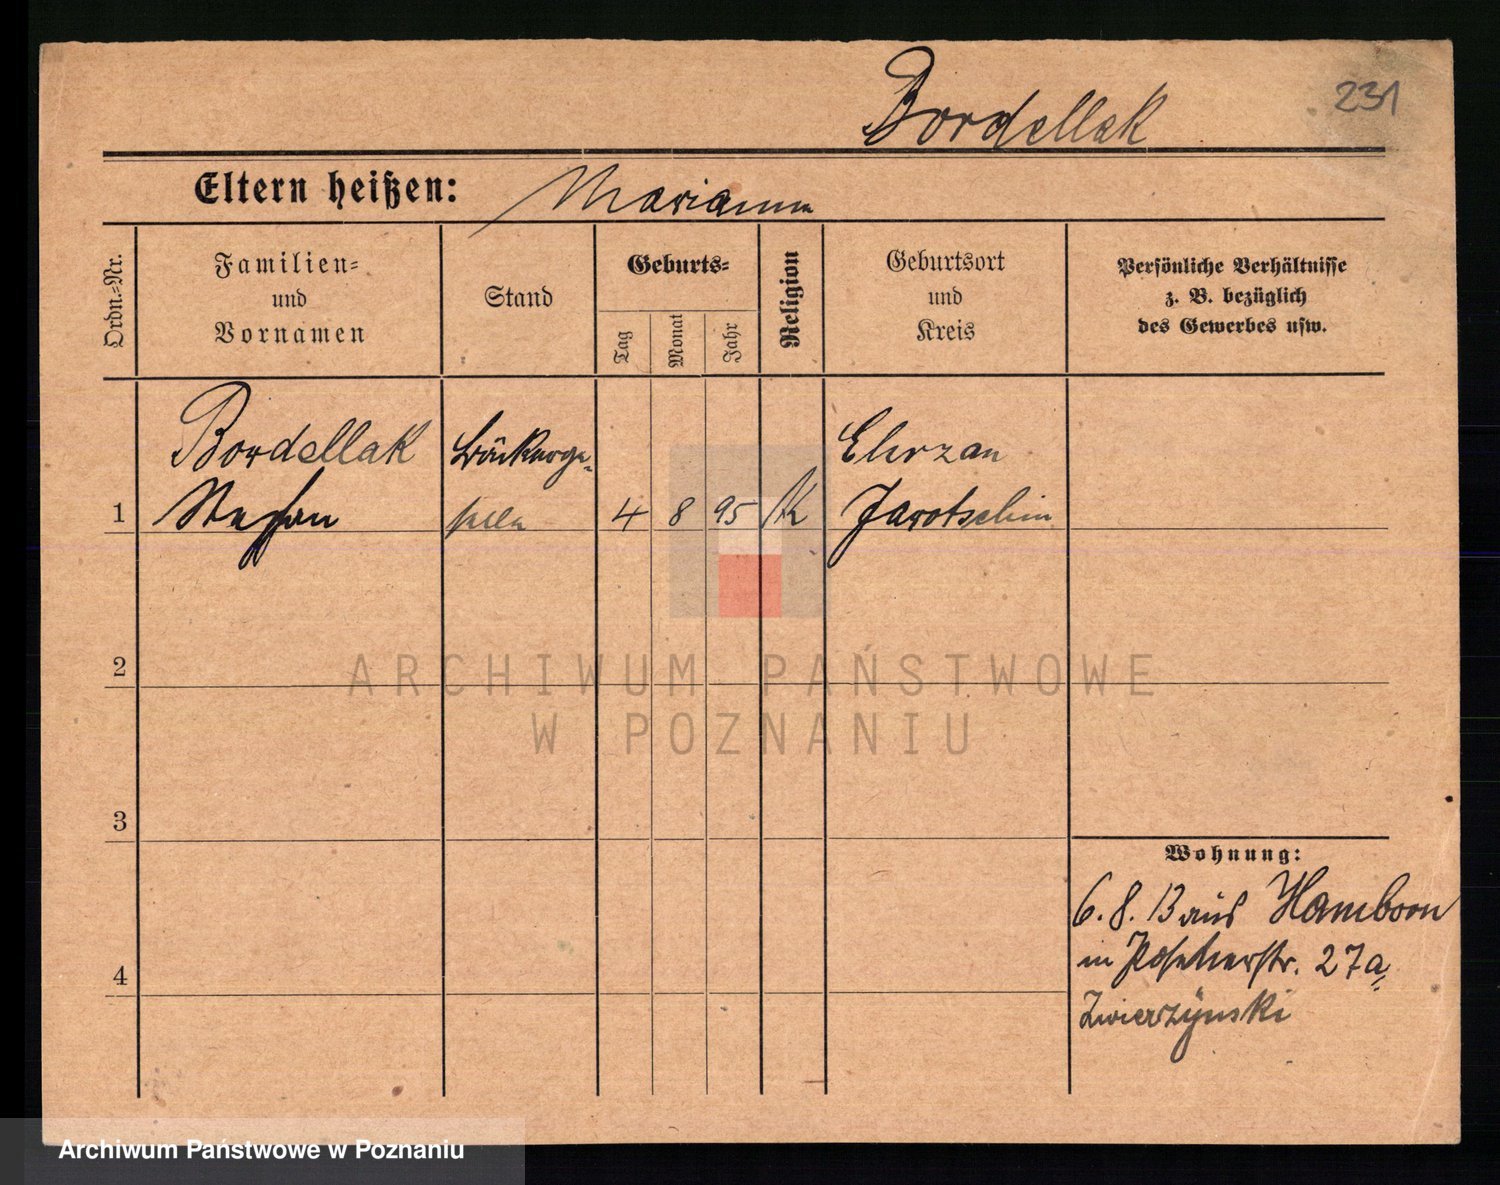 Bordellak
231
Eltern heißen: Marianna
Ordn.-Nr.
Familien-
und
Vornamen
Stand
Geburts-
Tag
Monat
Jahr
Religion
Geburtsort
und
Kreis
Persönliche Verhältnisse
z. B. bezüglich
des Gewerbes usw.
Bordellak Bäckerge- Ehrzan
1 Stefan selle 4 8 95 K Jarotschin
2
3
4
Wohnung:
6. 8. 13 aus Hamborn
in 27a
Zwierzynski
ARCHIWUM PAŃSTWOWE
W POZNANIU
Archiwum Państwowe w Poznaniu